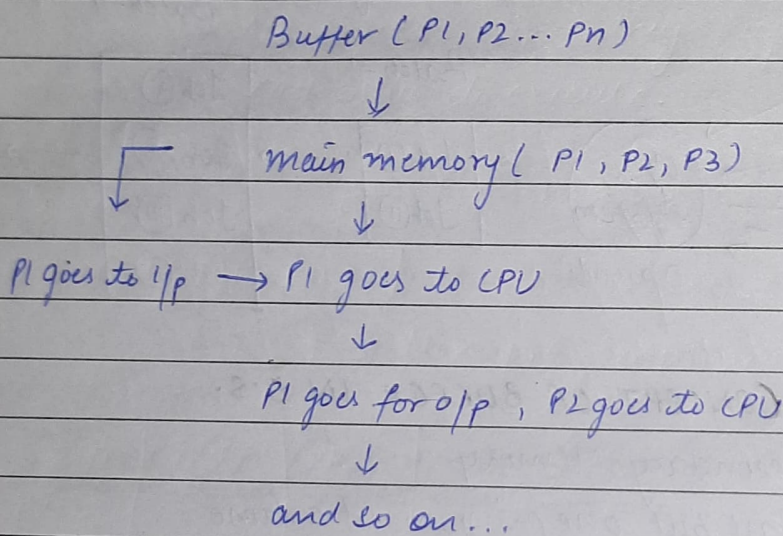 Buffer (P1, P2... Pn)
↓
main memory ( P1, P2, P3)
↓
P1 goes to i/p → P1 goes to CPU
↓
P1 goes for o/p, P2 goes to CPU
↓
and so on...